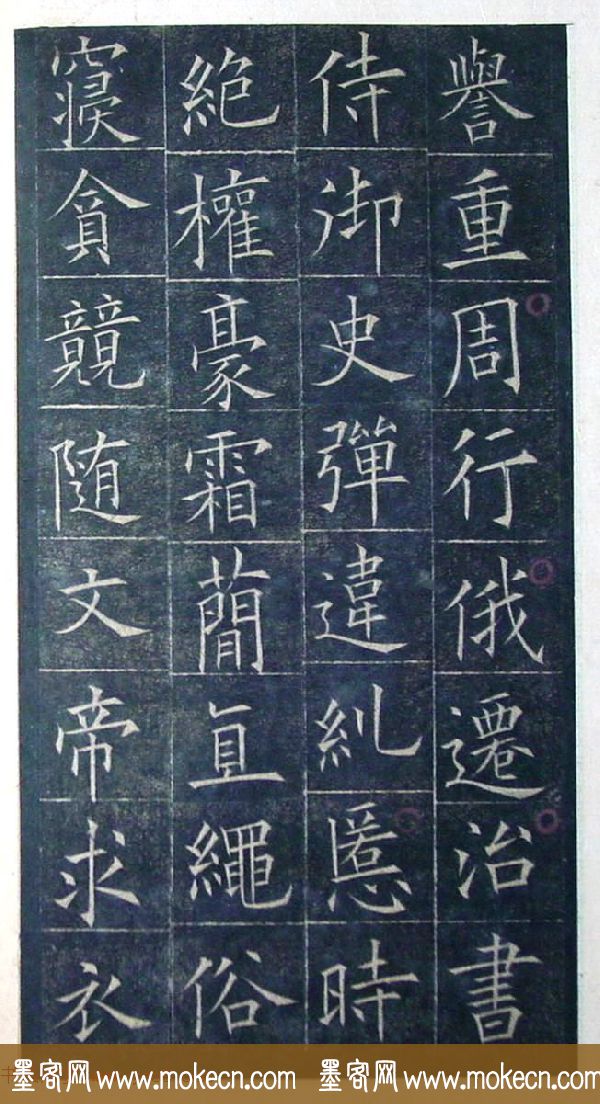 譽重周行俄遷治書
侍御史彈違糺慝時
絶權豪霜蕳直繩俗
寢貪競隨文帝求衣
墨客网 www.mokecn.com 墨客网 www.mokecn.com